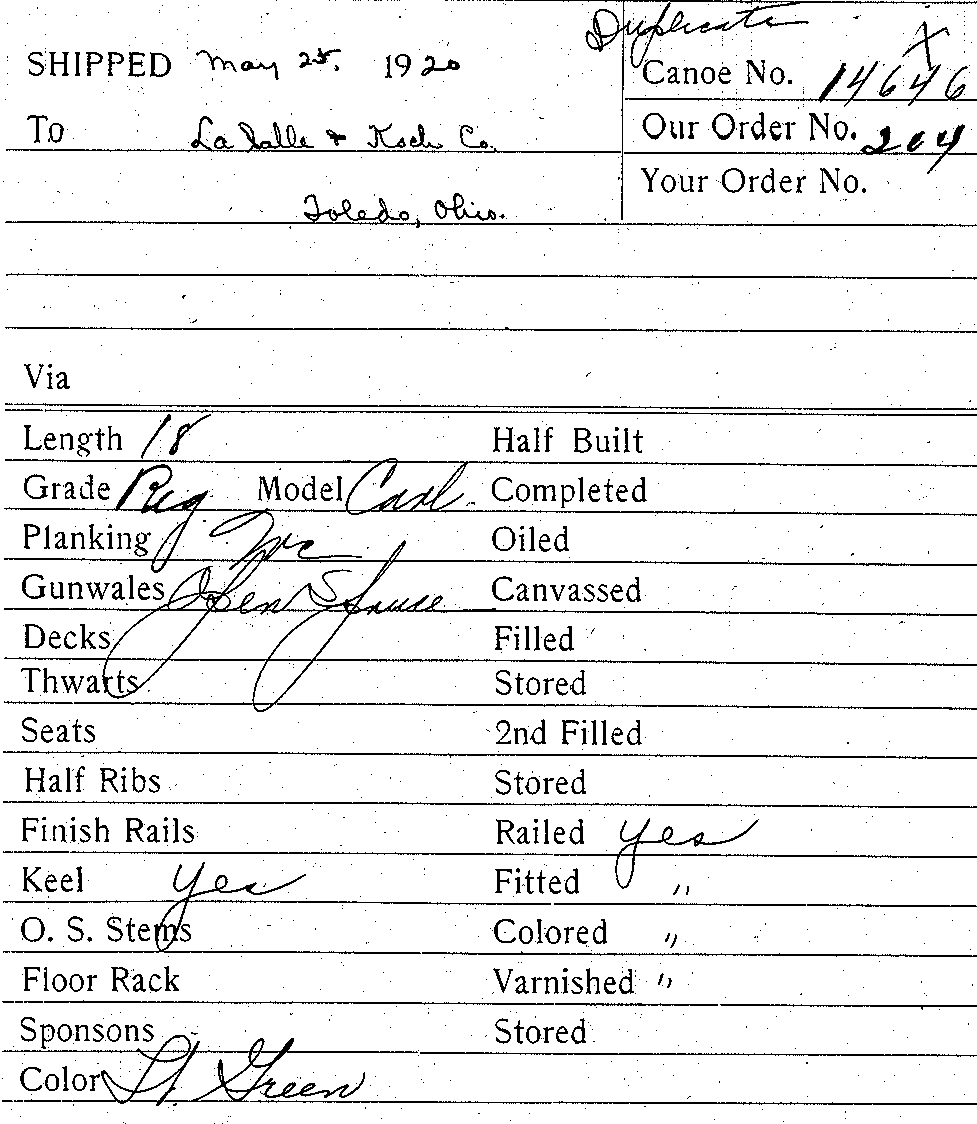 Duplicate
X
SHIPPED May 25, 1920
Canoe No. 14646
To La Salle & Koch Co.
Our Order No. 204
Your Order No.
Toledo, Ohio.
Via
Length 18 Half Built
Grade Reg Model Carl Completed
Planking WC Oiled
Gunwales Open Spruce Canvassed
Decks Filled
Thwarts Stored
Seats 2nd Filled
Half Ribs Stored
Finish Rails Railed Yes
Keel Yes Fitted "
O. S. Stems Colored "
Floor Rack Varnished "
Sponsons Stored
Color Lt. Green